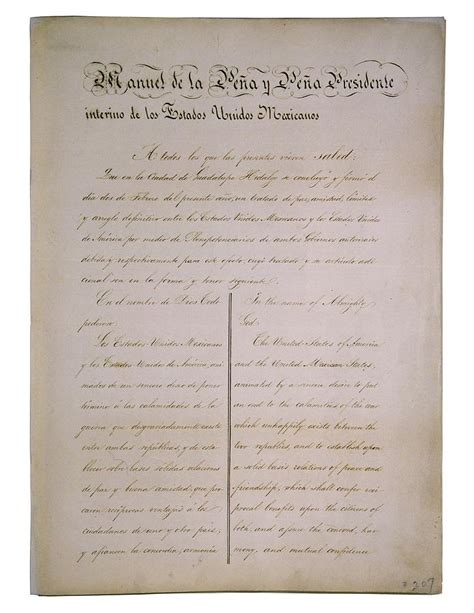 Manuel de la Peña y Peña Presidente
interino de los Estados Unidos Mexicanos
A todos los que las presentes vieren sabed:
Que en la Ciudad de Guadalupe Hidalgo se concluyó y firmó el
día dos de Febrero del presente año, un tratado de paz, amistad, límites
y arreglo definitivo entre los Estados Unidos Mexicanos y los Estados Unidos
de América por medio de Plenipotenciarios de ambos Gobiernos autorizados
debida y respectivamente para este efecto, cuyo tratado y su artículo adi-
cional son en la forma y tenor siguiente.
En el nombre de Dios Todo
poderoso:
Los Estados Unidos Mexicanos
y los Estados Unidos de América, ani-
mados de un sincero deseo de poner
término á las calamidades de la
guerra que desgraciadamente existe
entre ambas repúblicas, y de esta-
blecer sobre bases sólidas relaciones
de paz y buena amistad, que pro-
curen recíprocas ventajas á los
ciudadanos de uno y otro país,
y afiancen la concordia, armonía
In the name of Almighty
God:
The United States of America
and the United Mexican States,
animated by a sincere desire to put
an end to the calamities of the war
which unhappily exists between the
two republics, and to establish upon
a solid basis relations of peace and
friendship, which shall confer reci-
procal benefits upon the citizens of
both, and assure the concord, har-
mony, and mutual confidence
207